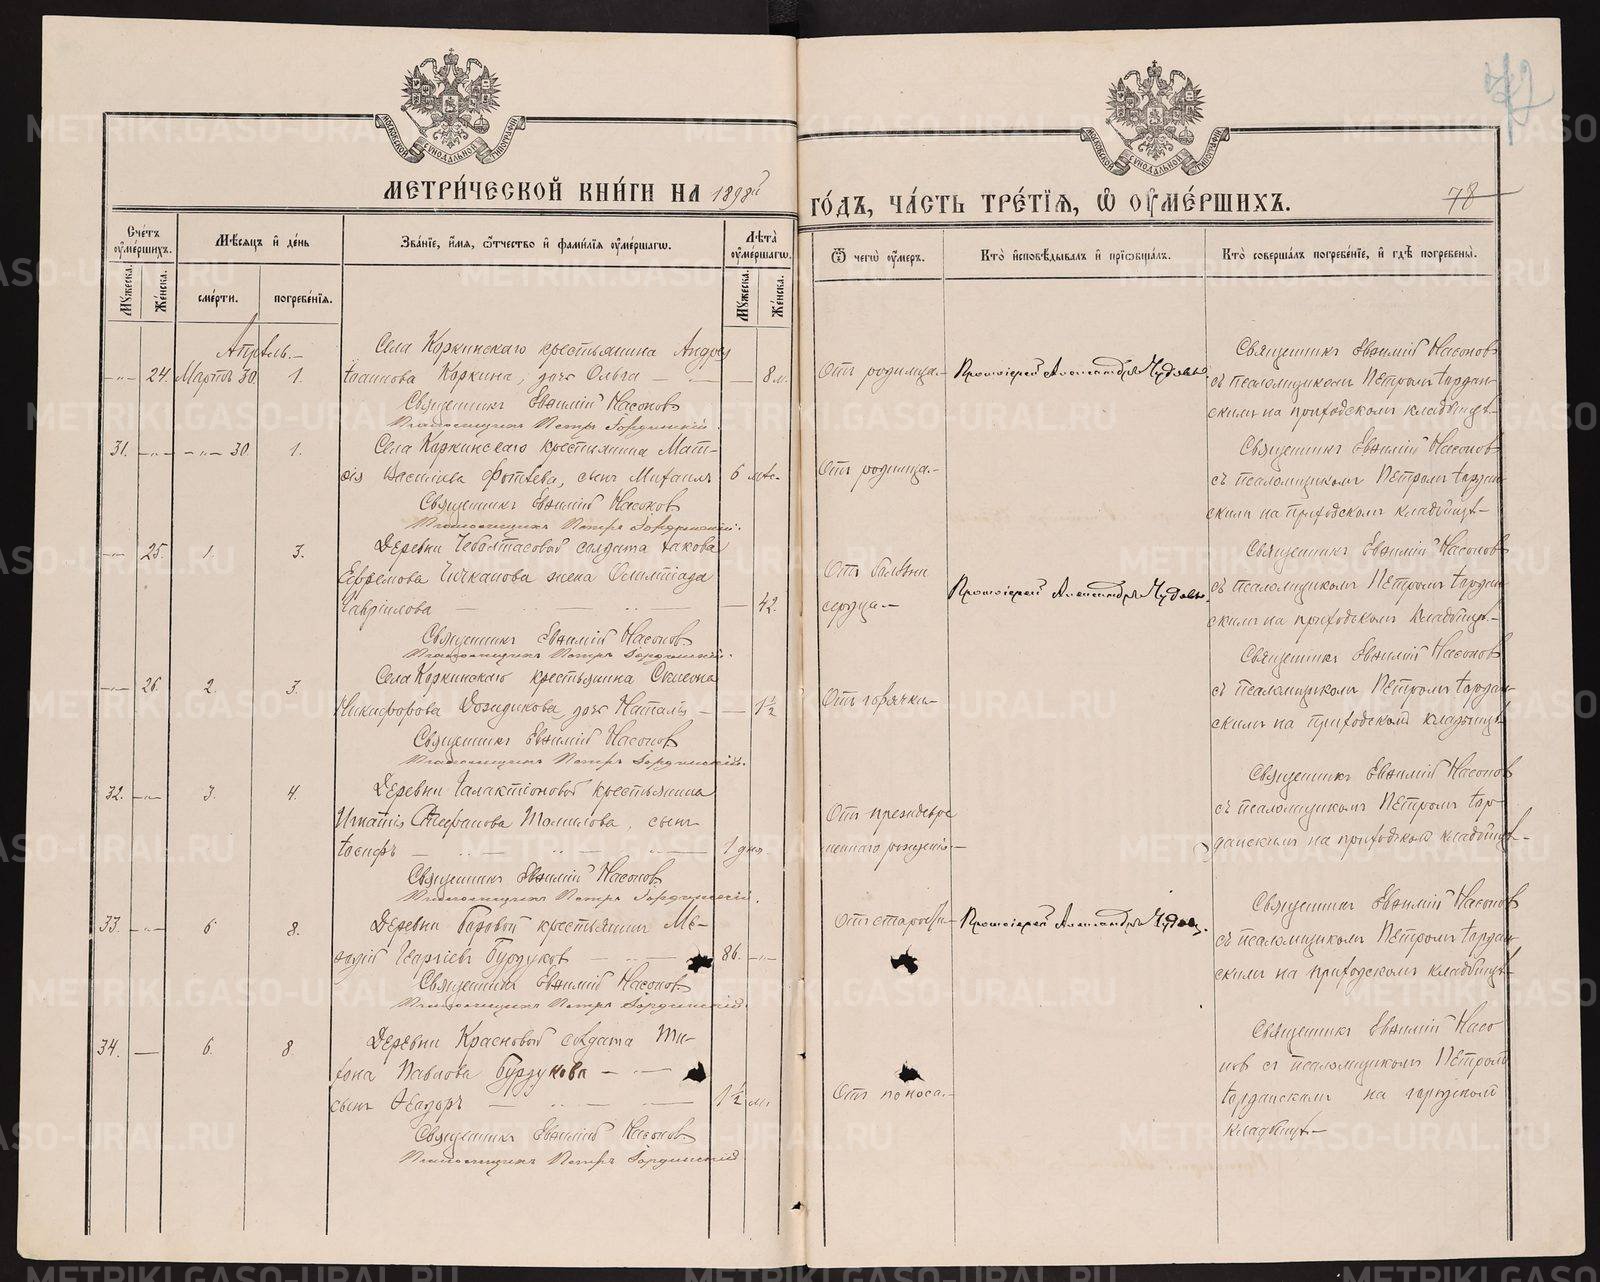 МОСКОВСКОЙ СѴНОДАЛЬНОЙ ТИПОГРАФІИ
МОСКОВСКОЙ СѴНОДАЛЬНОЙ ТИПОГРАФІИ
МЕТРИ́ЧЕСКОЙ КНИ́ГИ НА 1898й
ГО́ДЪ, ЧА́СТЬ ТРЕ́ТІѦ, Ѡ҆ ОУ҆МЕ́РШИХЪ.
78
Сче́тъ оу҆ме́ршихъ.
Мꙋжеска. Же́нска.
Мѣ́сѧцъ и҆ де́нь
сме́рти. погребе́нїѧ.
Зва́нїе, и҆́мѧ, ѻ҆́тчество и҆ фамі́лїѧ оу҆ме́ршагѡ.
Лѣ́та оу҆ме́ршагѡ.
Мꙋжеска. Же́нска.
Ѿ чегѡ̀ оу҆́меръ.
Кто̀ и҆сповѣ́дывалъ и҆ прїѡбща́лъ.
Кто̀ соверша́лъ погребе́нїе, и҆ гдѣ̀ погребены̀.
Апрѣль.
24. Марта 30. 1.
Села Коркинскаго крестьянина Андрея
Іоаннова Коркина, дочь Ольга 8 м.
Священникъ Евѳимій Насоновъ
Псаломщикъ Петръ Іорданскій.
Отъ родимца.
Протоіерей Александръ Чудовъ.
Священникъ Евѳимій Насоновъ
съ псаломщикомъ Петромъ Іордан-
скимъ на приходскомъ кладбищѣ
31. 30. 1.
Села Коркинскаго крестьянина Мат-
ѳія Васильева Фотѣева, сынъ Михаилъ 6 мѣс.
Священникъ Евѳимій Насоновъ
Псаломщикъ Петръ Іорданскій.
Отъ родимца.
Священникъ Евѳимій Насоновъ
съ псаломщикомъ Петромъ Іордан-
скимъ на приходскомъ кладбищѣ
25. 1. 3.
Деревни Чеболтасовой солдата Іакова
Ефремова Чичканова жена Олимпіада
Гавріилова 42.
Священникъ Евѳимій Насоновъ.
Псаломщикъ Петръ Іорданскій.
Отъ болѣзни
сердца.
Протоіерей Александръ Чудовъ.
Священникъ Евѳимій Насоновъ
съ псаломщикомъ Петромъ Іордан-
скимъ на приходскомъ кладбищѣ.
26. 2. 3.
Села Коркинскаго крестьянина Симеона
Никифорова дочь Наталія 1½
Священникъ Евѳимій Насоновъ
Псаломщикъ Петръ Іорданскій.
Отъ горячки
Священникъ Евѳимій Насоновъ
съ псаломщикомъ Петромъ Іордан-
скимъ на приходскомъ кладбищѣ
32. 3. 4.
Деревни Галактіоновой крестьянина
Игнатія Стефанова Томилова, сынъ
Іосифъ 1 дня.
Священникъ Евѳимій Насоновъ.
Псаломщикъ Петръ Іорданскій.
Отъ преждевре
меннаго рожденія
Священникъ Евѳимій Насоновъ
съ псаломщикомъ Петромъ Іор-
данскимъ на приходскомъ кладбищѣ
33. 6 8.
Деревни Боровой крестьянинъ Ме-
ѳодій Георгіевъ Бурдуковъ 86.
Священникъ Евѳимій Насоновъ.
Псаломщикъ Петръ Іорданскій.
Отъ старости
Протоіерей Александръ Чудовъ.
Священникъ Евѳимій Насоновъ
съ псаломщикомъ Петромъ Іордан-
скимъ на приходскомъ кладбищѣ
34. 6. 8.
Деревни Красновой солдата Ти-
хона Павлова Бурдукова
сынъ Ѳеодоръ 1½ м.
Священникъ Евѳимій Насоновъ
Псаломщикъ Петръ Іорданскій
Отъ поноса.
Священникъ Евѳимій Насо
новъ съ псаломщикомъ Петромъ
Іорданскимъ на городскомъ
кладбищѣ
METRIKI.GASO-URAL.RU